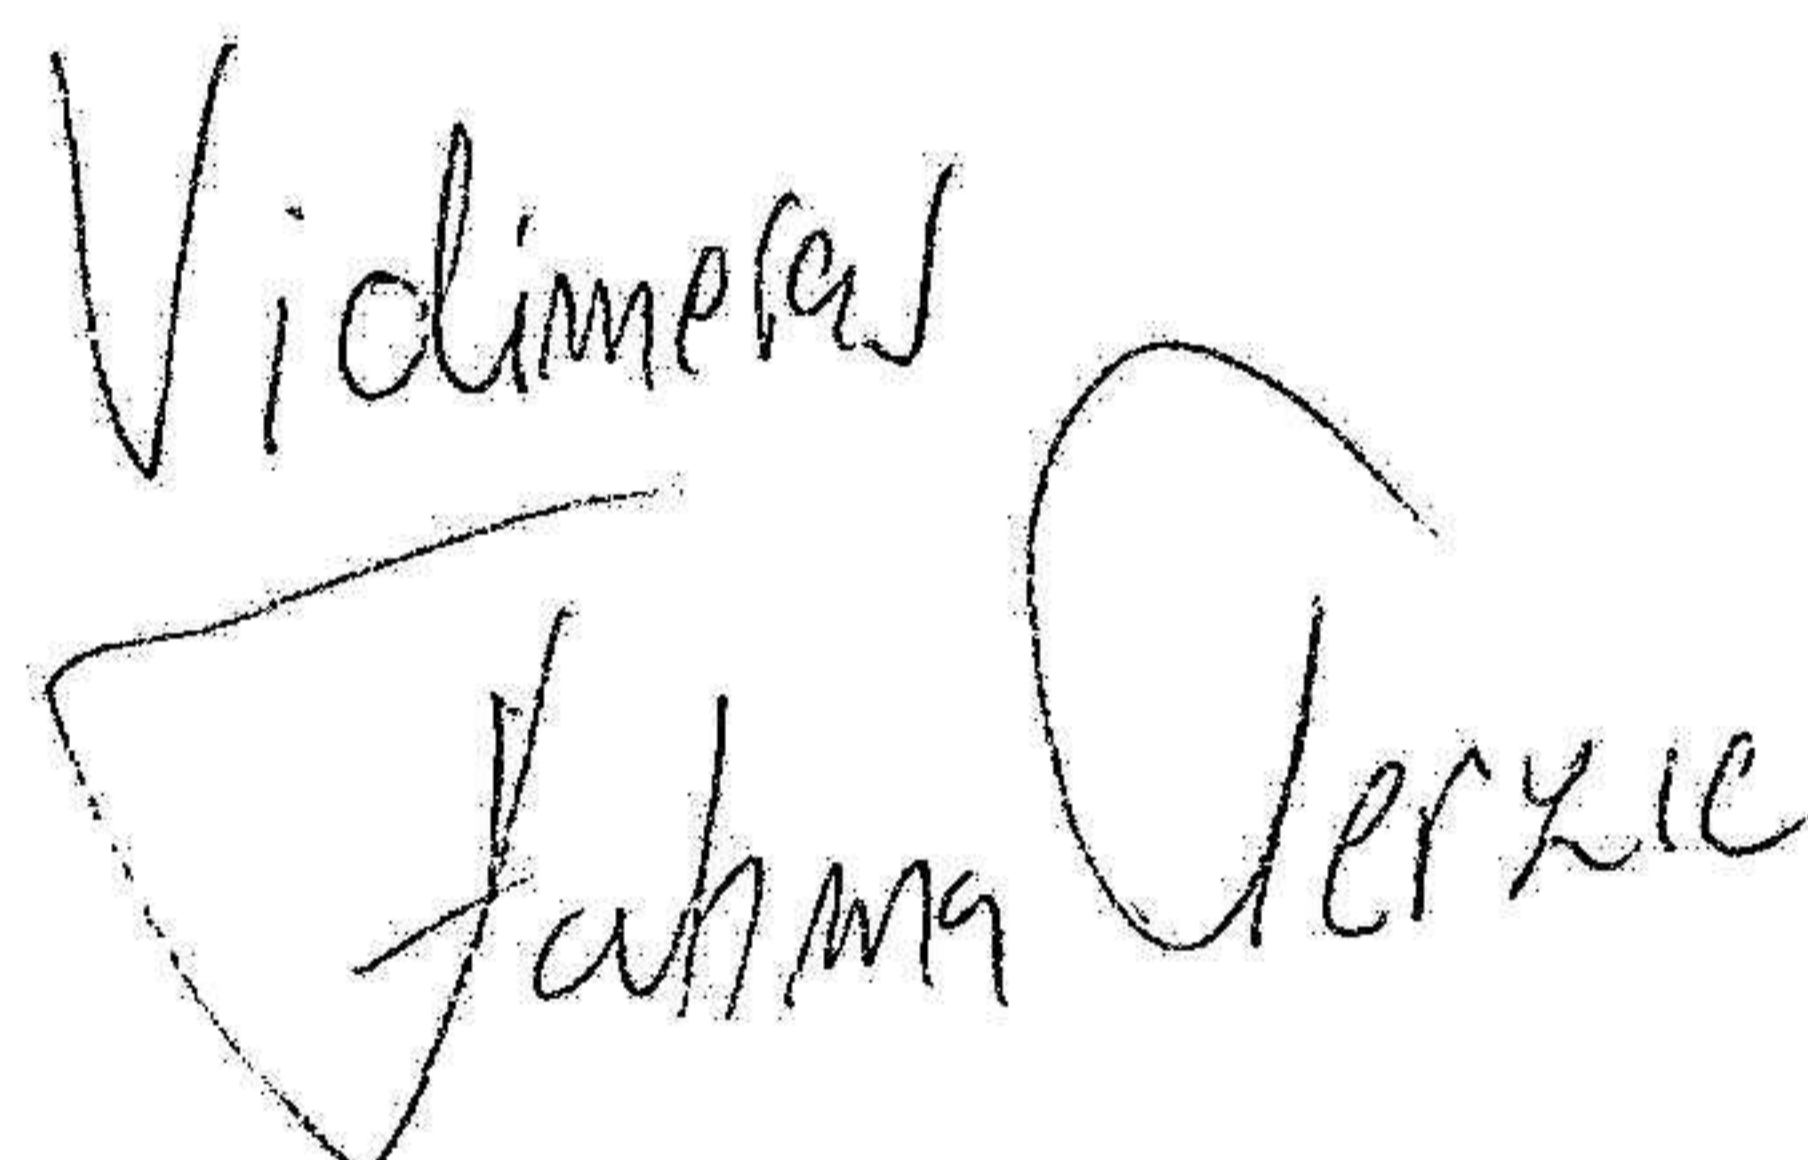 Vidimeras
Fahma Terzic